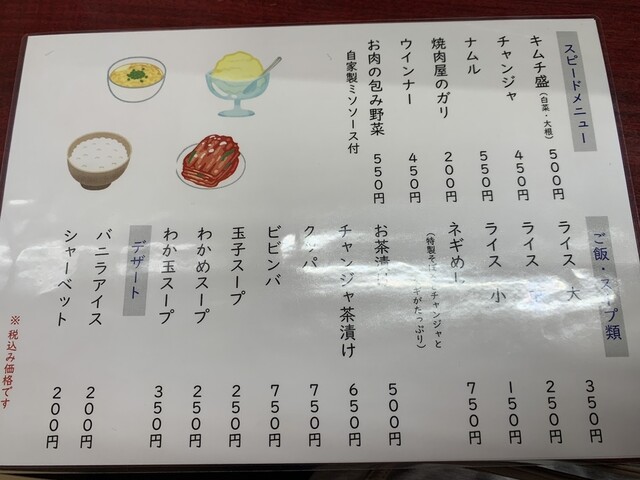 スピードメニュー
キムチ盛(白菜・大根) 500円
チャンジャ 450円
ナムル 550円
焼肉屋のガリ 200円
ウインナー 450円
お肉の包み野菜 550円
自家製ミソソース付
ご飯・スープ類
ライス 大 350円
ライス 250円
ライス 小 150円
ネギめし 750円
(特製そ チャンジャと
ギがたっぷり)
お茶漬け 500円
チャンジャ茶漬け 650円
クッパ 750円
ビビンバ 750円
玉子スープ 250円
わかめスープ 250円
わか玉スープ 350円
デザート
バニラアイス 200円
シャーベット 200円
※税込み価格です